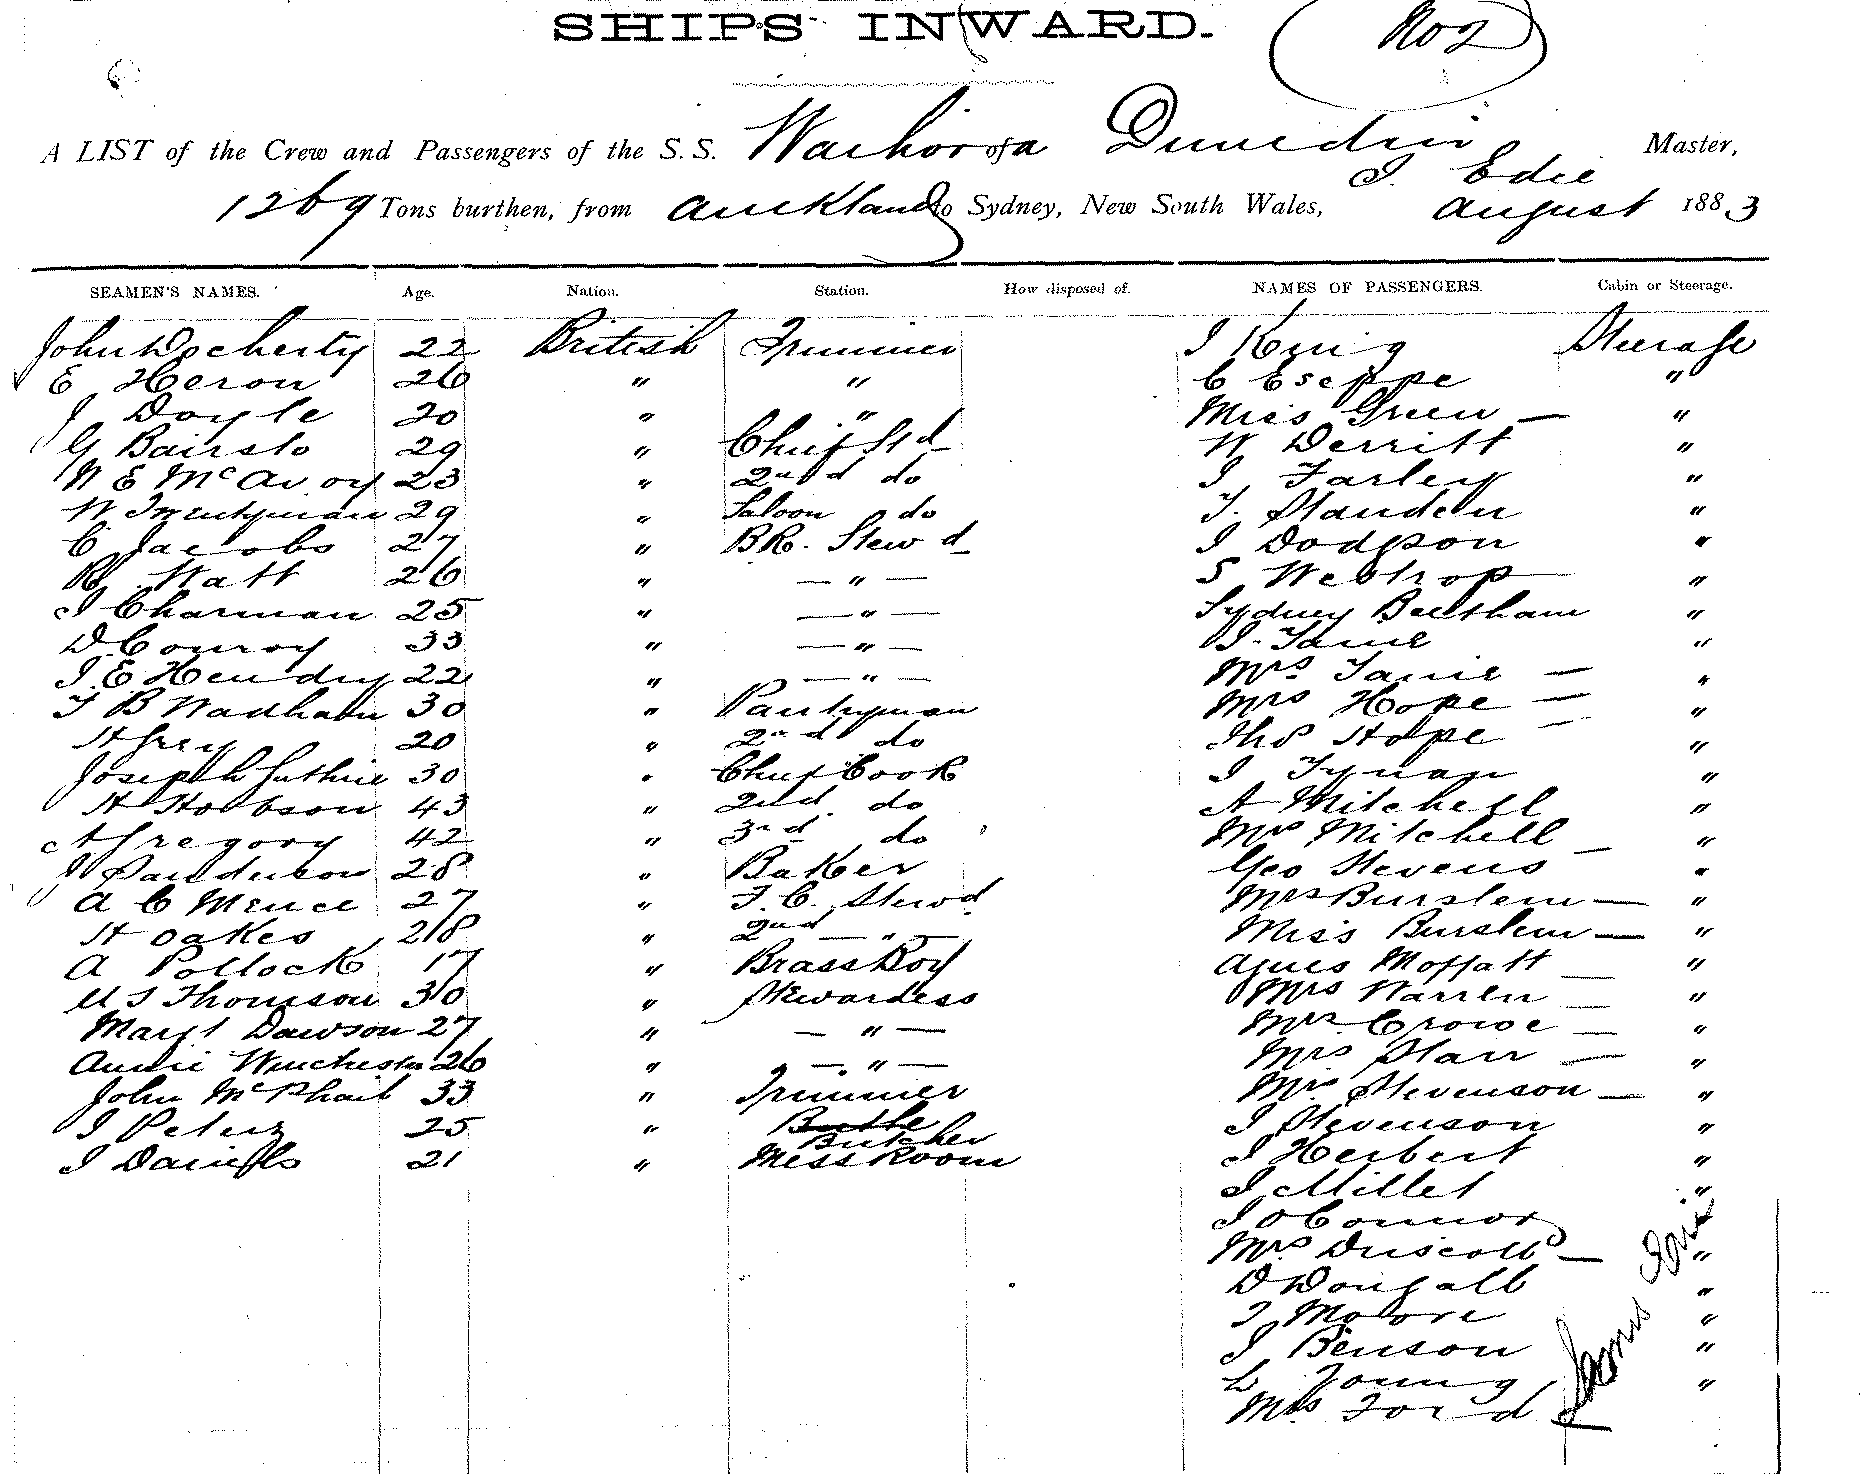 SHIPS INWARD.
No 2
A LIST of the Crew and Passengers of the S.S. Waihora of Dunedin J. Edie Master,
1269 Tons burthen, from Auckland to Sydney, New South Wales, August 1883
SEAMEN'S NAMES. Age. Nation. Station. How disposed of. NAMES OF PASSENGERS. Cabin or Steerage.
John Docherty 22 British Trimmer J King Steerage
E Heron 26 " " C Eseppe "
J Doyle 20 " " Miss Green — "
G Bairsto 29 " Chief Std W Derritt "
W E McAvoy 23 " 2nd do J Farley "
W 29 " Saloon do T. Standen "
C Jacobs 27 " BR. Stewd J Dodgson "
R Watt 26 " — " — S Westrop "
J Charman 25 " — " — Sydney Beetham "
D Conroy 33 " — " — J. "
J. E Hendry 22 " — " — Mrs — "
F B Wadham 30 " Pantryman Mrs Hope — "
H Grey 20 " 2nd do Thos Hope — "
Joseph Guthrie 30 " Chief Cook J Tynan "
H Hobson 43 " 2nd do A Mitchell "
A Gregory 42 " 3rd do Mrs Mitchell — "
J Sanderson 28 " Baker Geo Stevens "
A C Mence 27 " F. C. Stewd Mrs Burslem — "
H Oakes 28 " 2nd — " — Miss Burslem — "
A Pollock 17 " Brass Boy Agnes Moffatt — "
M J Thomson 30 " Stewardess Mrs Warren — "
Mary J Dawson 27 " — " — Mrs Crowe — "
Annie Winchester 26 " — " — Mrs Starr — "
John McPhail 33 " Trimmer Mrs Stevenson — "
J Peters 25 " Butcher J Stevenson "
J Daniells 21 " Mess Room J Herbert "
J Millet "
J O'Connor
Mrs Driscoll — "
D Dougall "
T Moore "
J Benson "
L Young "
Mrs Ford
James Edie